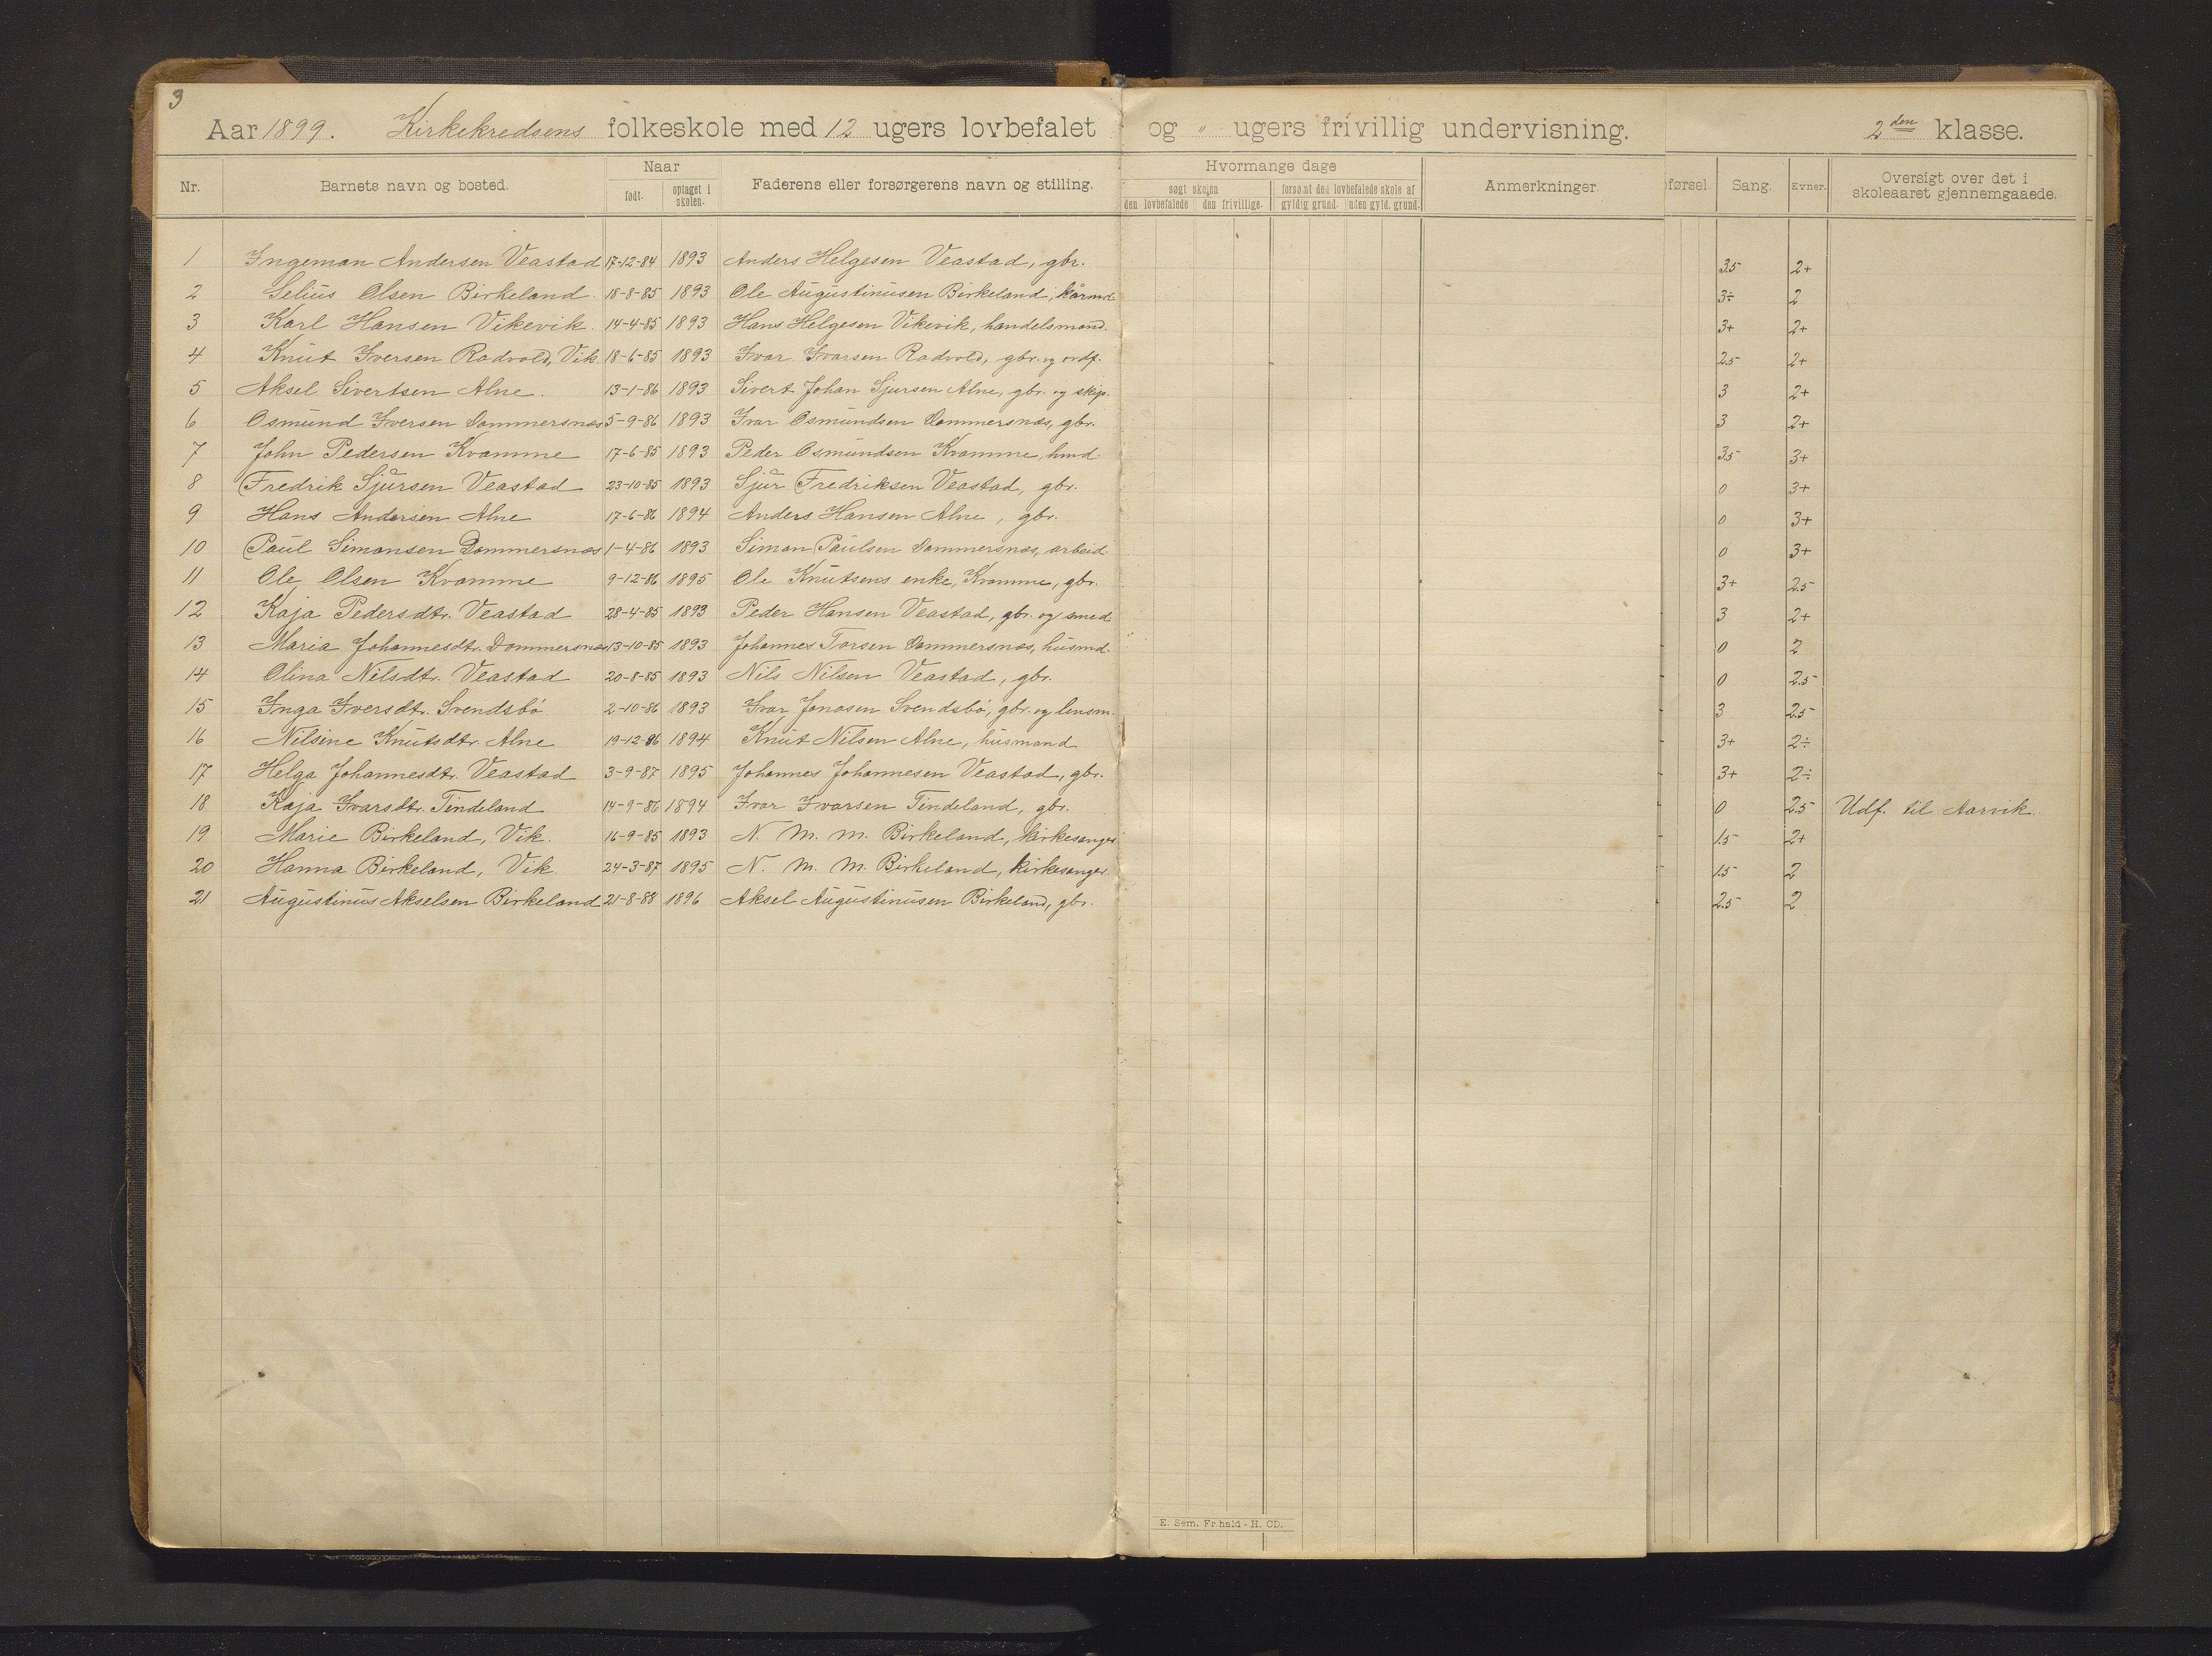 3
Aar 1899. Kirkekredsens folkeskole med 12 ugers lovbefalet og " ugers frivillig undervisning. 2den klasse.
Nr. Barnets navn og bosted. Naar født. optaget i skolen. Faderens eller forsørgerens navn og stilling. Hvormange dage søgt skolen den lovbefalede den frivillige. forsømt den lovbefalede skole af gyldig grund. uden gyld. grund. Anmerkninger. førsel. Sang. Evner. Oversigt over det i skoleaaret gjennemgaaede.
1 Ingeman Andersen Veastad 17-12-84 1893 Anders Helgesen Veastad, gbr. 3.5 2+
2 Selius Olsen Birkeland. 18-8-85 1893 Ole Augustinusen Birkeland, kårmd. 3÷ 2
3 Karl Hansen Vikevik. 14-4-85 1893 Hans Helgesen Vikevik, handelsmand. 3+ 2+
4 Knut Iversen Radvold, Vik. 18-6-85 1893 Ivar Ivarsen Radvold, gbr. og ordf. 2.5 2+
5 Aksel Sivertsen Alne. 13-1-86 1893 Sivert Johan Sjursen Alne, gbr. og skip. 3 2+
6 Osmund Iversen Dommersnæs 5-9-86 1893 Ivar Osmundsen Dommersnæs, gbr. 3 2+
7 John Pedersen Kvamme 17-6-85 1893 Peder Osmundsen Kvamme, hmd. 3.5 3+
8 Fredrik Sjursen Veastad 23-10-85 1893 Sjur Fredriksen Veastad, gbr. 0 3+
9 Hans Andersen Alne 17-6-86 1894 Anders Hansen Alne, gbr. 0 3+
10 Paul Simonsen Dommersnæs 1-4-86 1893 Simon Paulsen Dommersnæs, arbeid. 0 3+
11 Ole Olsen Kvamme 9-12-86 1895 Ole Knutsens enke, Kvamme, gbr. 3+ 2.5
12 Kaja Pedersdtr. Veastad 28-4-85 1893 Peder Hansen Veastad, gbr. og smed. 3 2+
13 Maria Johannesdtr. Dommersnæs 13-10-85 1893 Johannes Torsen Dommersnæs, husmd. 0 2
14 Olina Nilsdtr. Veastad 20-8-85 1893 Nils Nilsen Veastad, gbr. 0 2.5
15 Inga Iversdtr. Svendsbø 2-10-86 1893 Ivar Jonasen Svendsbø, gbr. og lensm. 3 2.5
16 Nilsine Knutsdtr. Alne 19-12-86 1894 Knut Nilsen Alne, husmand 3+ 2÷
17 Helga Johannesdtr. Veastad 3-9-87 1895 Johannes Johannesen Veastad, gbr. 3+ 2÷
18 Kaja Ivarsdtr. Tindeland 14-9-86 1894 Ivar Ivarsen Tindeland, gbr. 0 2.5 Udf. til Aarvik.
19 Marie Birkeland, Vik. 16-9-85 1893 N. M. M. Birkeland, kirkesanger 1.5 2+
20 Hanna Birkeland, Vik. 24-3-87 1895 N. M. M. Birkeland, kirkesanger. 1.5 2
21 Augustinus Akselsen Birkeland 21-8-88 1896 Aksel Augustinusen Birkeland, gbr. 2.5 2
E. Sem. Fr.hald - H. CD.